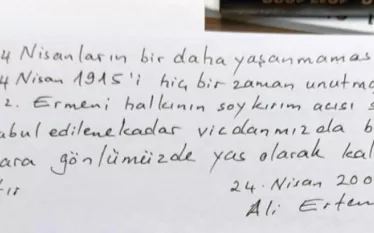 4 Nisanların bir daha yaşanmamas
4 Nisan 1915'i hiç bir zaman unutma
z. Ermeni halkının soykırım acısı s
abul edilene kadar vicdanımızda b
ara gönlümüzde yas olarak kal
tır
24. Nisan 200
Ali Ertem